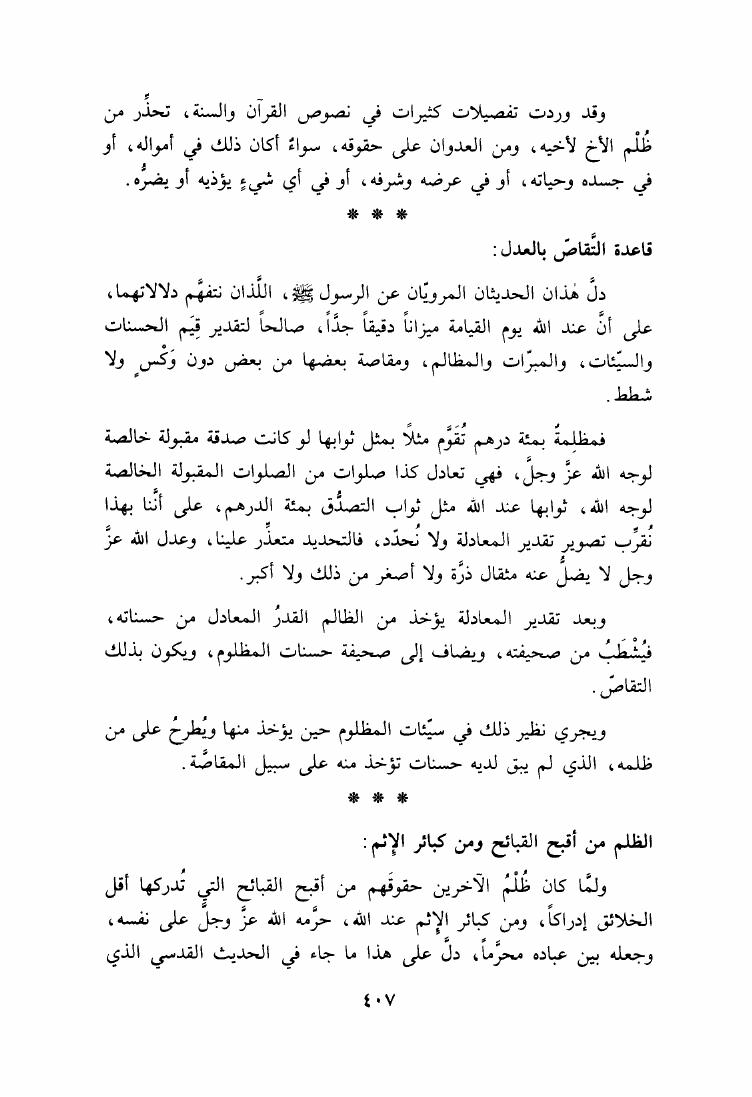 وقد وردت تفصيلات كثيرات في نصوص القرآن والسنة، تحذِّر من
ظُلْم الأخ لأخيه، ومن العدوان على حقوقه، سواءٌ أكان ذلك في أمواله، أو
في جسده وحياته، أو في عرضه وشرفه، أو في أي شيءٍ يؤذيه أو يضرُّه.
* * *
قاعدة التَّقاصّ بالعدل:
دلَّ هٰذان الحديثان المرويّان عن الرسول ﷺ، اللَّذان نتفهَّم دلالاتهما،
على أنَّ عند الله يوم القيامة ميزاناً دقيقاً جدَّاً، صالحاً لتقدير قِيَم الحسنات
والسيّئات، والمبرّات والمظالم، ومقاصة بعضها من بعض دون وَكْسٍ ولا
شطط.
فمظلِمةٌ بمئة درهم تُقَوَّم مثلاً بمثل ثوابها لو كانت صدقة مقبولة خالصة
لوجه الله عزَّ وجلَّ، فهي تعادل كذا صلوات من الصلوات المقبولة الخالصة
لوجه الله، ثوابها عند الله مثل ثواب التصدُّق بمئة الدرهم، على أنَّنا بهذا
نُقرِّب تصوير تقدير المعادلة ولا نُحدّد، فالتحديد متعذِّر علينا، وعدل الله عزَّ
وجل لا يضلُّ عنه مثقال ذرَّة ولا أصغر من ذلك ولا أكبر.
وبعد تقدير المعادلة يؤخذ من الظالم القدرُ المعادل من حسناته،
فيُشْطَبُ من صحيفته، ويضاف إلى صحيفة حسنات المظلوم، ويكون بذلك
التقاصّ.
ويجري نظير ذلك في سيّئات المظلوم حين يؤخذ منها ويُطرحُ على من
ظلمه، الذي لم يبق لديه حسنات تؤخذ منه على سبيل المقاصَّة.
* * *
الظلم من أقبح القبائح ومن كبائر الإثم:
ولمَّا كان ظُلْمُ الآخرين حقوقَهم من أقبح القبائح التي تُدركها أقل
الخلائق إدراكاً، ومن كبائر الإثم عند الله، حرَّمه الله عزَّ وجلَّ على نفسه،
وجعله بين عباده محرَّماً، دلَّ على هذا ما جاء في الحديث القدسي الذي
٤٠٧